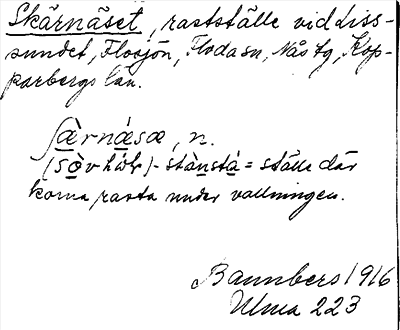 Skärnäset, rastställe vid Liss-
sundet, Flosjön, Floda sn, Nås tg, Kop-
parbergs län.
ʃæ̀rnǻsæ, n.
(sòvhώɫ)- stànstá = ställe där
korna rasta under vallningen.
Bannbers 1916
Ulma 223